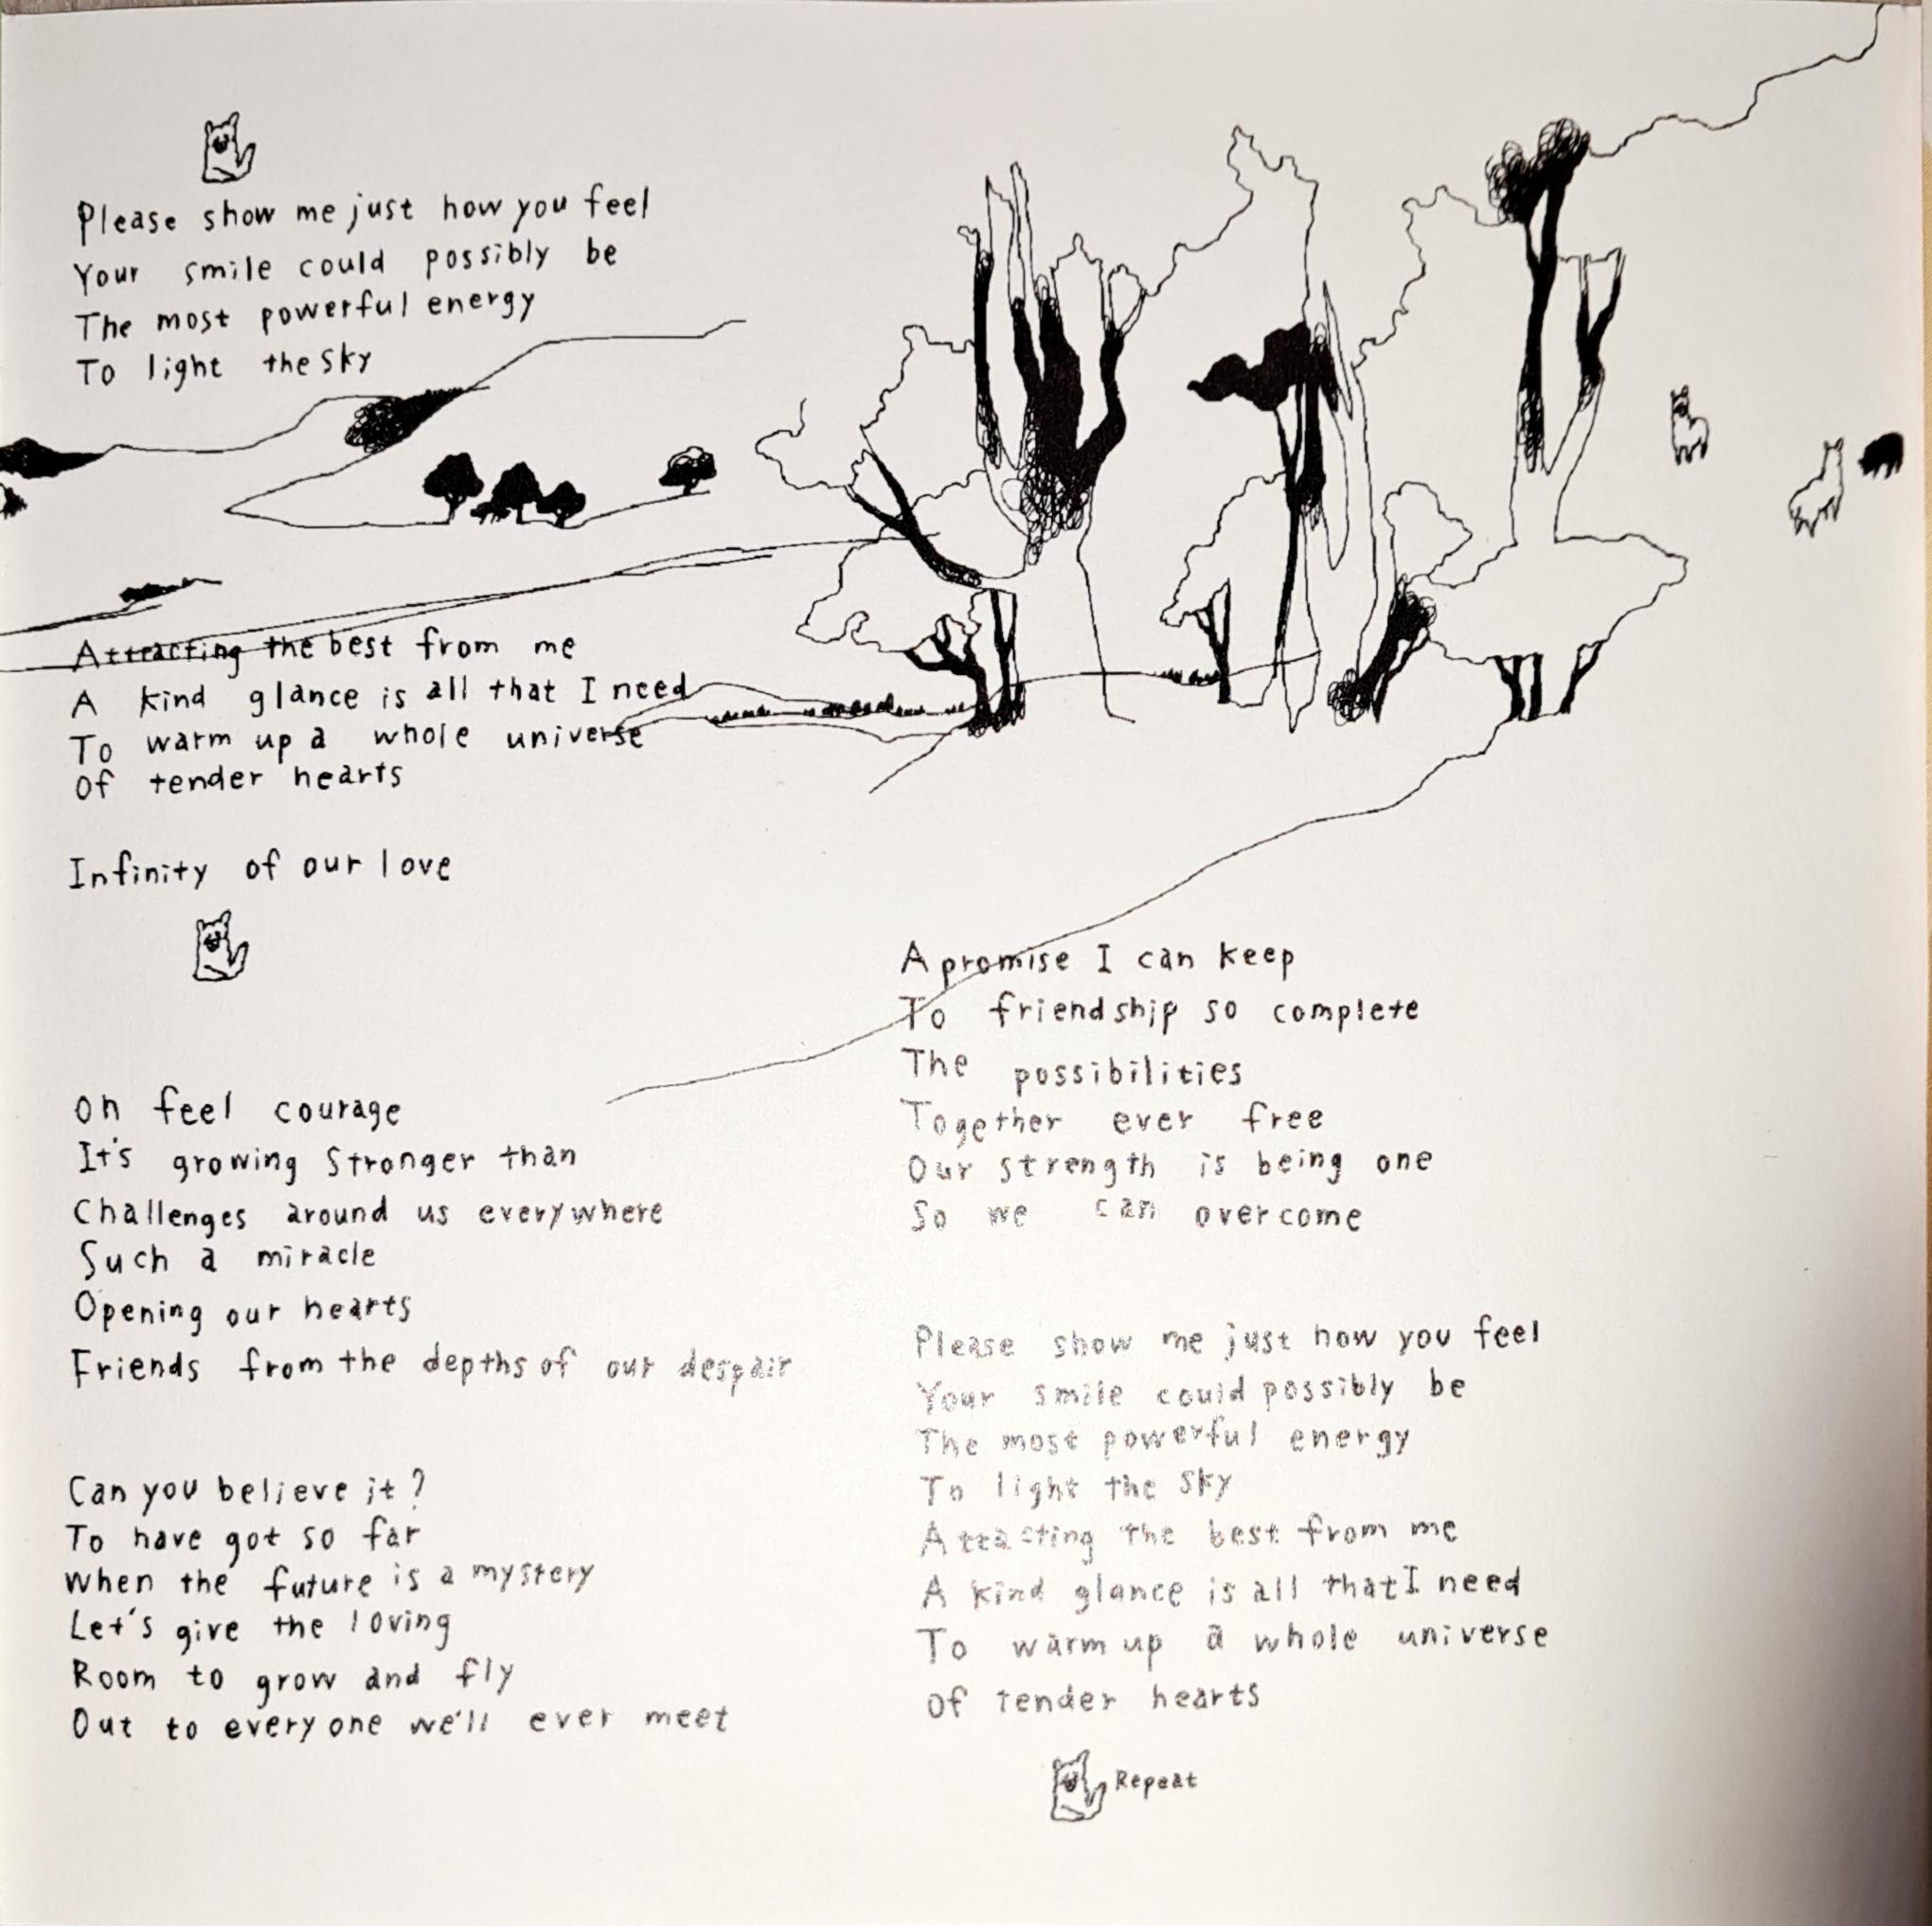 Please show me just how you feel
Your smile could possibly be
The most powerful energy
To light the sky
Attracting the best from me
A kind glance is all that I need
To warm up a whole universe
Of tender hearts
Infinity of our love
Oh feel courage
It's growing stronger than
Challenges around us everywhere
Such a miracle
Opening our hearts
Friends from the depths of our despair
Can you believe it?
To have got so far
When the future is a mystery
Let's give the loving
Room to grow and fly
Out to everyone we'll ever meet
A promise I can keep
To friendship so complete
The possibilities
Together ever free
Our strength is being one
So we can overcome
Please show me just how you feel
Your smile could possibly be
The most powerful energy
To light the sky
Attracting the best from me
A kind glance is all that I need
To warm up a whole universe
Of tender hearts
Repeat